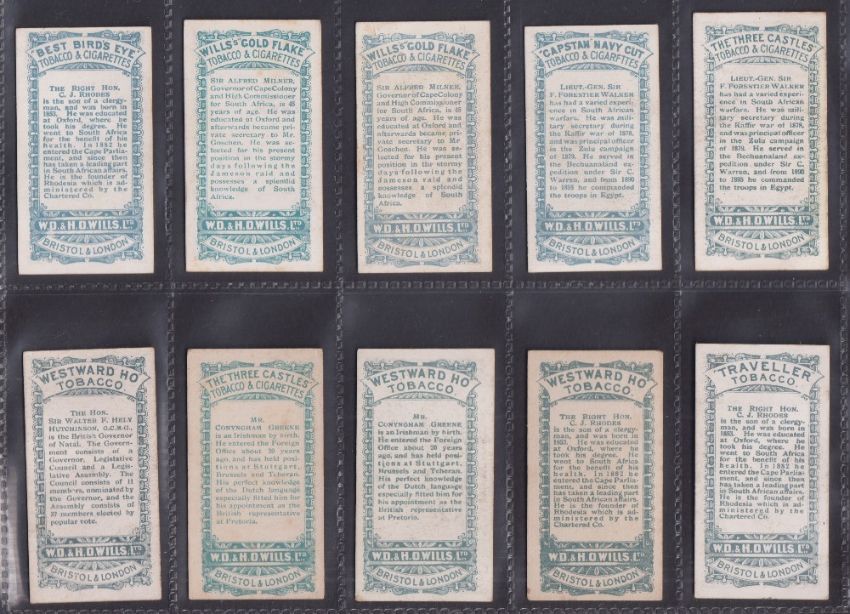 "BEST BIRD'S EYE"
TOBACCO & CIGARETTES
THE RIGHT HON.
C. J. RHODES
is the son of a clergy-
man, and was born in
1853. He was educated
at Oxford, where he
took his degree. He
went to South Africa
for the benefit of his
health. In 1882 he
entered the Cape Parlia-
ment, and since then
has taken a leading part
in South African affairs.
He is the founder of
Rhodesia which is ad-
ministered by the
Chartered Co.
W.D. & H.O. WILLS, LTD
BRISTOL & LONDON
WILLS'S "GOLD FLAKE"
TOBACCO & CIGARETTES
SIR ALFRED MILNER,
Governor of Cape Colony
and High Commissioner
for South Africa, is 45
years of age. He was
educated at Oxford and
afterwards became pri-
vate secretary to Mr.
Goschen. He was se-
lected for his present
position in the stormy
days following the
Jameson raid and
possesses a splendid
knowledge of South
Africa.
W.D. & H.O. WILLS, LTD
BRISTOL & LONDON
WILLS'S "GOLD FLAKE"
TOBACCO & CIGARETTES
SIR ALFRED MILNER,
Governor of Cape Colony
and High Commissioner
for South Africa, is 45
years of age. He was
educated at Oxford and
afterwards became pri-
vate secretary to Mr.
Goschen. He was se-
lected for his present
position in the stormy
days following the
Jameson raid and
possesses a splendid
knowledge of South
Africa.
W.D. & H.O. WILLS, LTD
BRISTOL & LONDON
"CAPSTAN" NAVY CUT
TOBACCO & CIGARETTES
LIEUT.-GEN. SIR
F. FORESTIER WALKER
has had a varied experi-
ence in South African
warfare. He was mili-
tary secretary during
the Kaffir war of 1878,
and was principal officer
in the Zulu campaign
of 1879. He served in
the Bechuanaland ex-
pedition under Sir C.
Warren, and from 1890
to 1895 he commanded
the troops in Egypt.
W.D. & H.O. WILLS, LTD
BRISTOL & LONDON
"THE THREE CASTLES"
TOBACCO & CIGARETTES
LIEUT.-GEN. SIR
F. FORESTIER WALKER
has had a varied experi-
ence in South African
warfare. He was mili-
tary secretary during
the Kaffir war of 1878,
and was principal officer
in the Zulu campaign
of 1879. He served in
the Bechuanaland ex-
pedition under Sir C.
Warren, and from 1890
to 1895 he commanded
the troops in Egypt.
W.D. & H.O. WILLS, LTD
BRISTOL & LONDON
"WESTWARD HO"
TOBACCO
THE HON.
SIR WALTER F. HELY
HUTCHINSON, G.C.M.G.,
is the British Governor
of Natal. The Govern-
ment consists of a
Governor, Legislative
Council and a Legis-
lative Assembly. The
Council consists of 11
members, nominated by
the Governor, and the
Assembly consists of
37 members elected by
popular vote.
W.D. & H.O. WILLS, LTD
BRISTOL & LONDON
"THE THREE CASTLES"
TOBACCO & CIGARETTES
MR.
CONYNGHAM GREENE
is an Irishman by birth.
He entered the Foreign
Office about 20 years
ago, and has held posi-
tions at Stuttgart,
Brussels and Teheran.
His perfect knowledge
of the Dutch language
especially fitted him for
his appointment as the
British representative
at Pretoria.
W.D. & H.O. WILLS, LTD
BRISTOL & LONDON
"WESTWARD HO"
TOBACCO
MR.
CONYNGHAM GREENE
is an Irishman by birth.
He entered the Foreign
Office about 20 years
ago, and has held posi-
tions at Stuttgart,
Brussels and Teheran.
His perfect knowledge
of the Dutch language
especially fitted him for
his appointment as the
British representative
at Pretoria.
W.D. & H.O. WILLS, LTD
BRISTOL & LONDON
"WESTWARD HO"
TOBACCO
THE RIGHT HON.
C. J. RHODES
is the son of a clergy-
man, and was born in
1853. He was educated
at Oxford, where he
took his degree. He
went to South Africa
for the benefit of his
health. In 1882 he
entered the Cape Parlia-
ment, and since then
has taken a leading part
in South African affairs.
He is the founder of
Rhodesia which is ad-
ministered by the
Chartered Co.
W.D. & H.O. WILLS, LTD
BRISTOL & LONDON
"TRAVELLER"
TOBACCO
THE RIGHT HON.
C. J. RHODES
is the son of a clergy-
man, and was born in
1853. He was educated
at Oxford, where he
took his degree. He
went to South Africa
for the benefit of his
health. In 1882 he
entered the Cape Parlia-
ment, and since then
has taken a leading part
in South African affairs.
He is the founder of
Rhodesia which is ad-
ministered by the
Chartered Co.
W.D. & H.O. WILLS, LTD
BRISTOL & LONDON